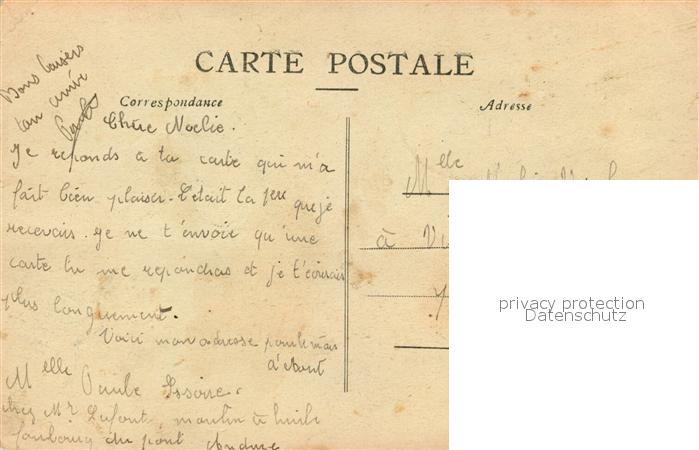 Bons baisers
ton amie
Paule
CARTE POSTALE
Correspondance
Adresse
Chère Noelie.
Je reponds à ta carte qui m'a
fait bien plaisir. C'était la 1ere que je
recevais. Je ne t'envoie qu'une
carte tu me repondras et je t'écrirais
plus longuement.
Voici mon adresse pour le mois
d'Aout
Melle Paule Issoire.
chez Mr Lafont, moulin à huile
faubourg du pont Anduze
Melle
à
privacy protection
Datenschutz